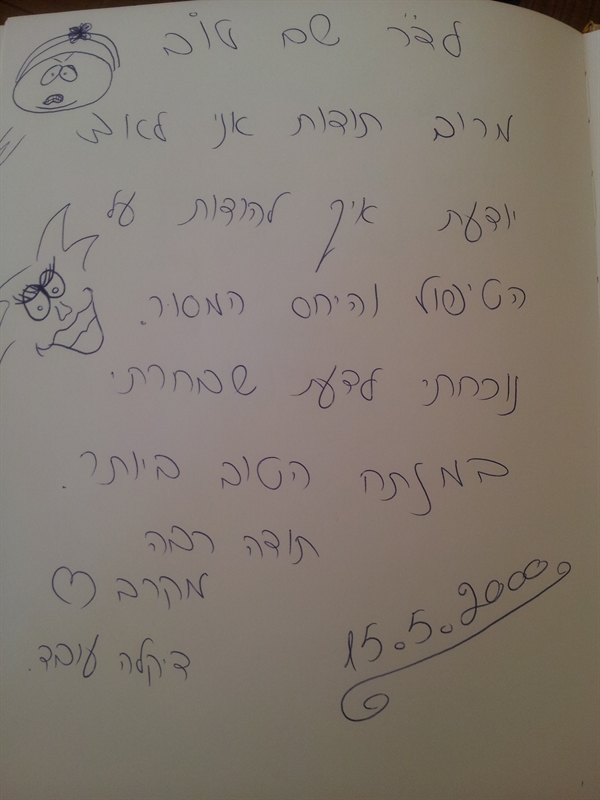 לד"ר שם טוב
מרוב תודות אני לא
יודעת איך להודות על
הטיפול והיחס המסור.
נוכחתי לדעת שבחרתי
במנתח הטוב ביותר.
תודה רבה
מקרב ♡
דיקלה עובד.
15.5.2000